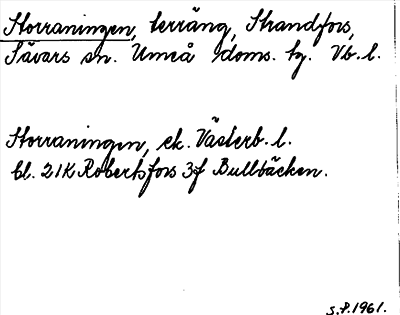 Storraningen, terräng, Strandfors,
Sävars sn. Umeå doms. tg. Vb. l.
Storraningen, ek. Västerb. l.
bl. 21K Robertsfors 3f Bullbäcken.
S.P. 1961.